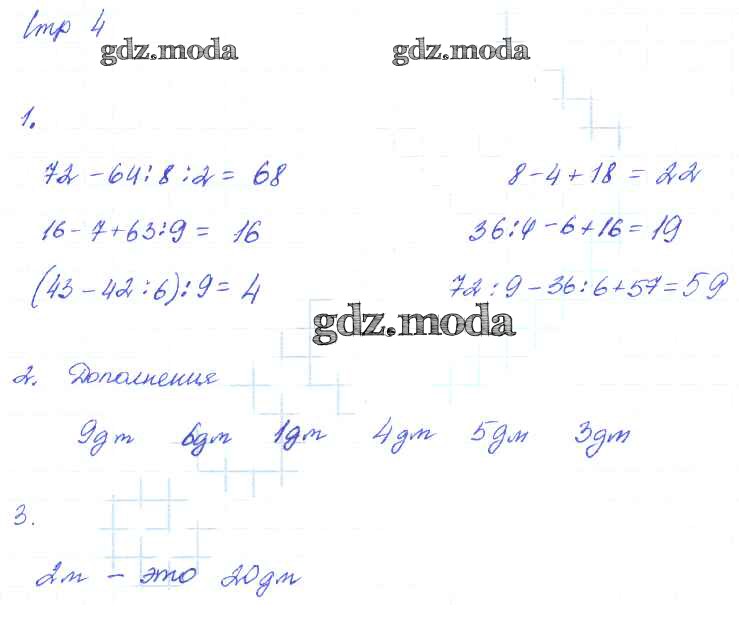 Стр 4
gdz.moda gdz.moda
1.
72 - 64 : 8 : 2 = 68 8 - 4 + 18 = 22
16 - 7 + 63 : 9 = 16 36 : 4 - 6 + 16 = 19
(43 - 42 : 6) : 9 = 4 72 : 9 - 36 : 6 + 57 = 59
gdz.moda
2. Дополнения
9дм 6дм 1дм 4дм 5дм 3дм
3.
2м - это 20дм